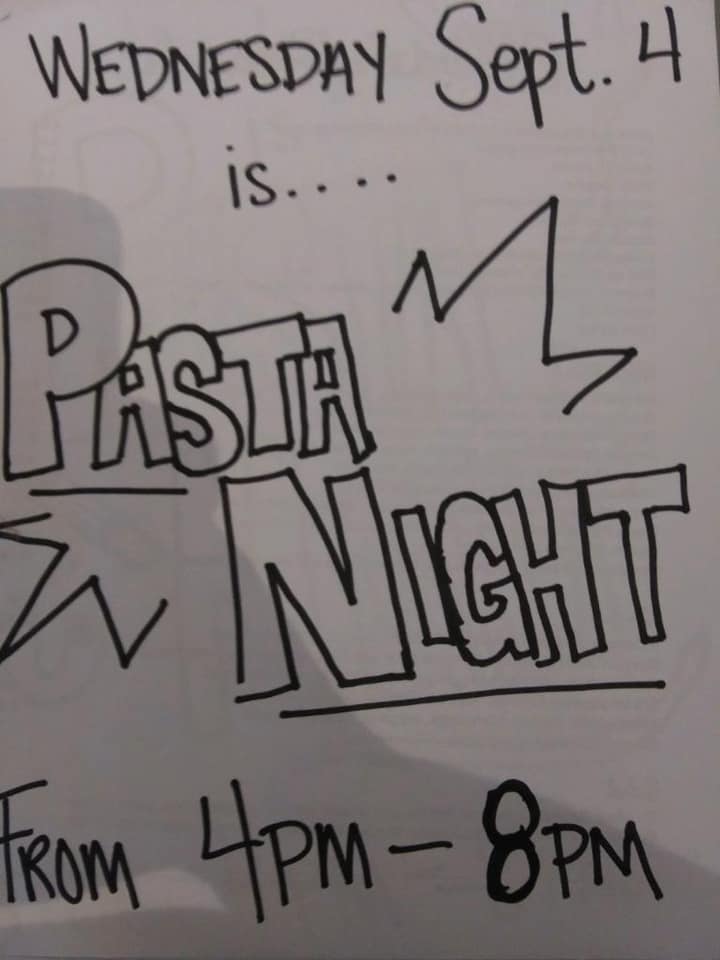 WEDNESDAY Sept. 4
is....
PASTA
NIGHT
FROM 4PM - 8PM